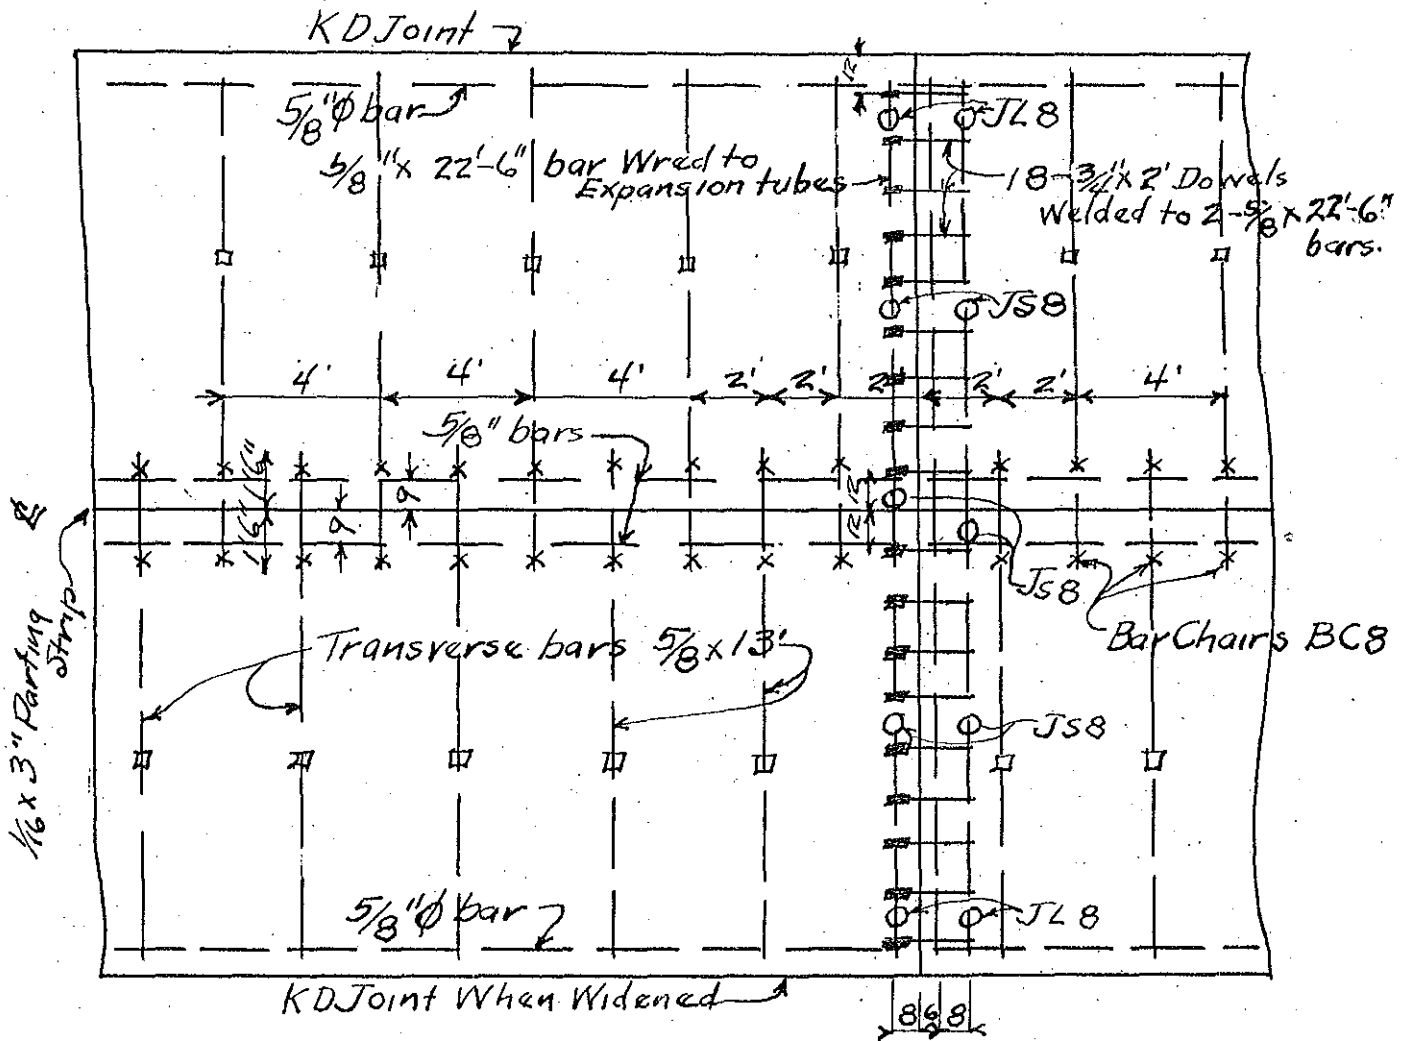 KDJoint
12
5/8"Ø bar
JL8
5/8"x 22'-6" bar Wred to
Expansion tubes
18-3/4"x2' Dowels
Welded to 2-5/8x22'-6"
bars.
JS8
4' 4' 4' 2' 2' 2' 2' 2' 4'
5/8" bars
1'6" 9 12
1'6" 9 12
℄
JS8
Bar Chairs BC8
1/16 x 3" Parting
Strip
Transverse bars 5/8x13'
JS8
5/8"Ø bar
JL8
KDJoint When Widened
8 6 8